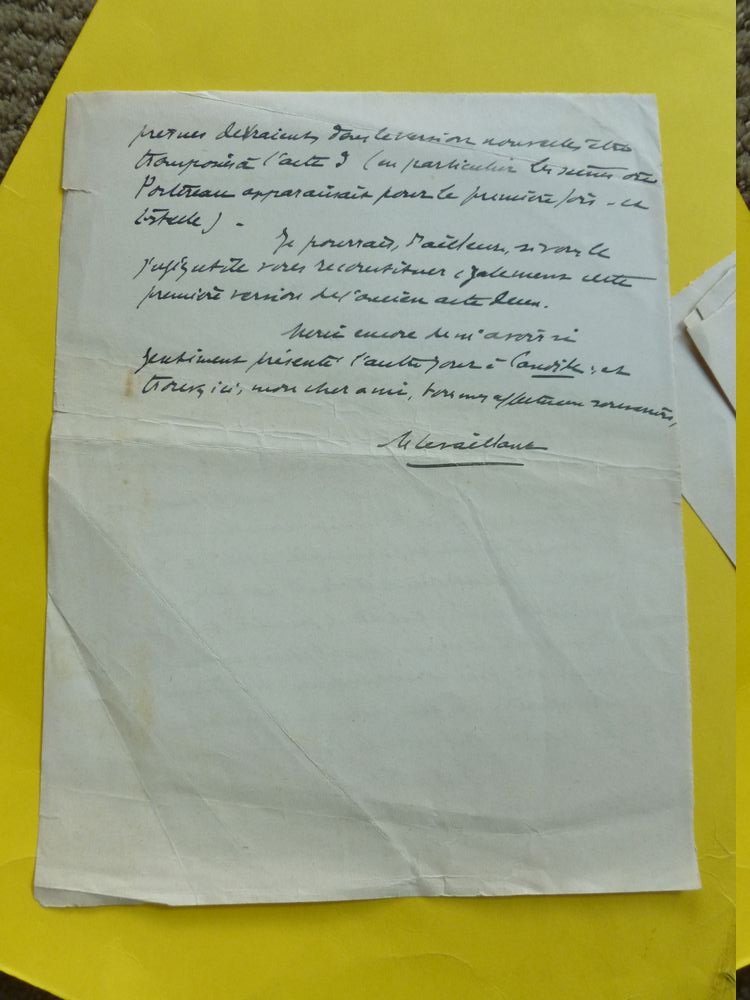 devraient, dans la version nouvelle, être
transposés à l'acte 3 (en particulier les scènes où
apparaissait pour la première fois - et
).
Je pourrais, d'ailleurs, si vous le
jugez utile vous reconstituer également cette
première version de l'ancien acte deux.
Merci encore de m'avoir si
gentiment présenté l'autre jour à Candide : et
trouvez ici, mon cher ami, tous mes affectueux souvenirs,
M Levaillant